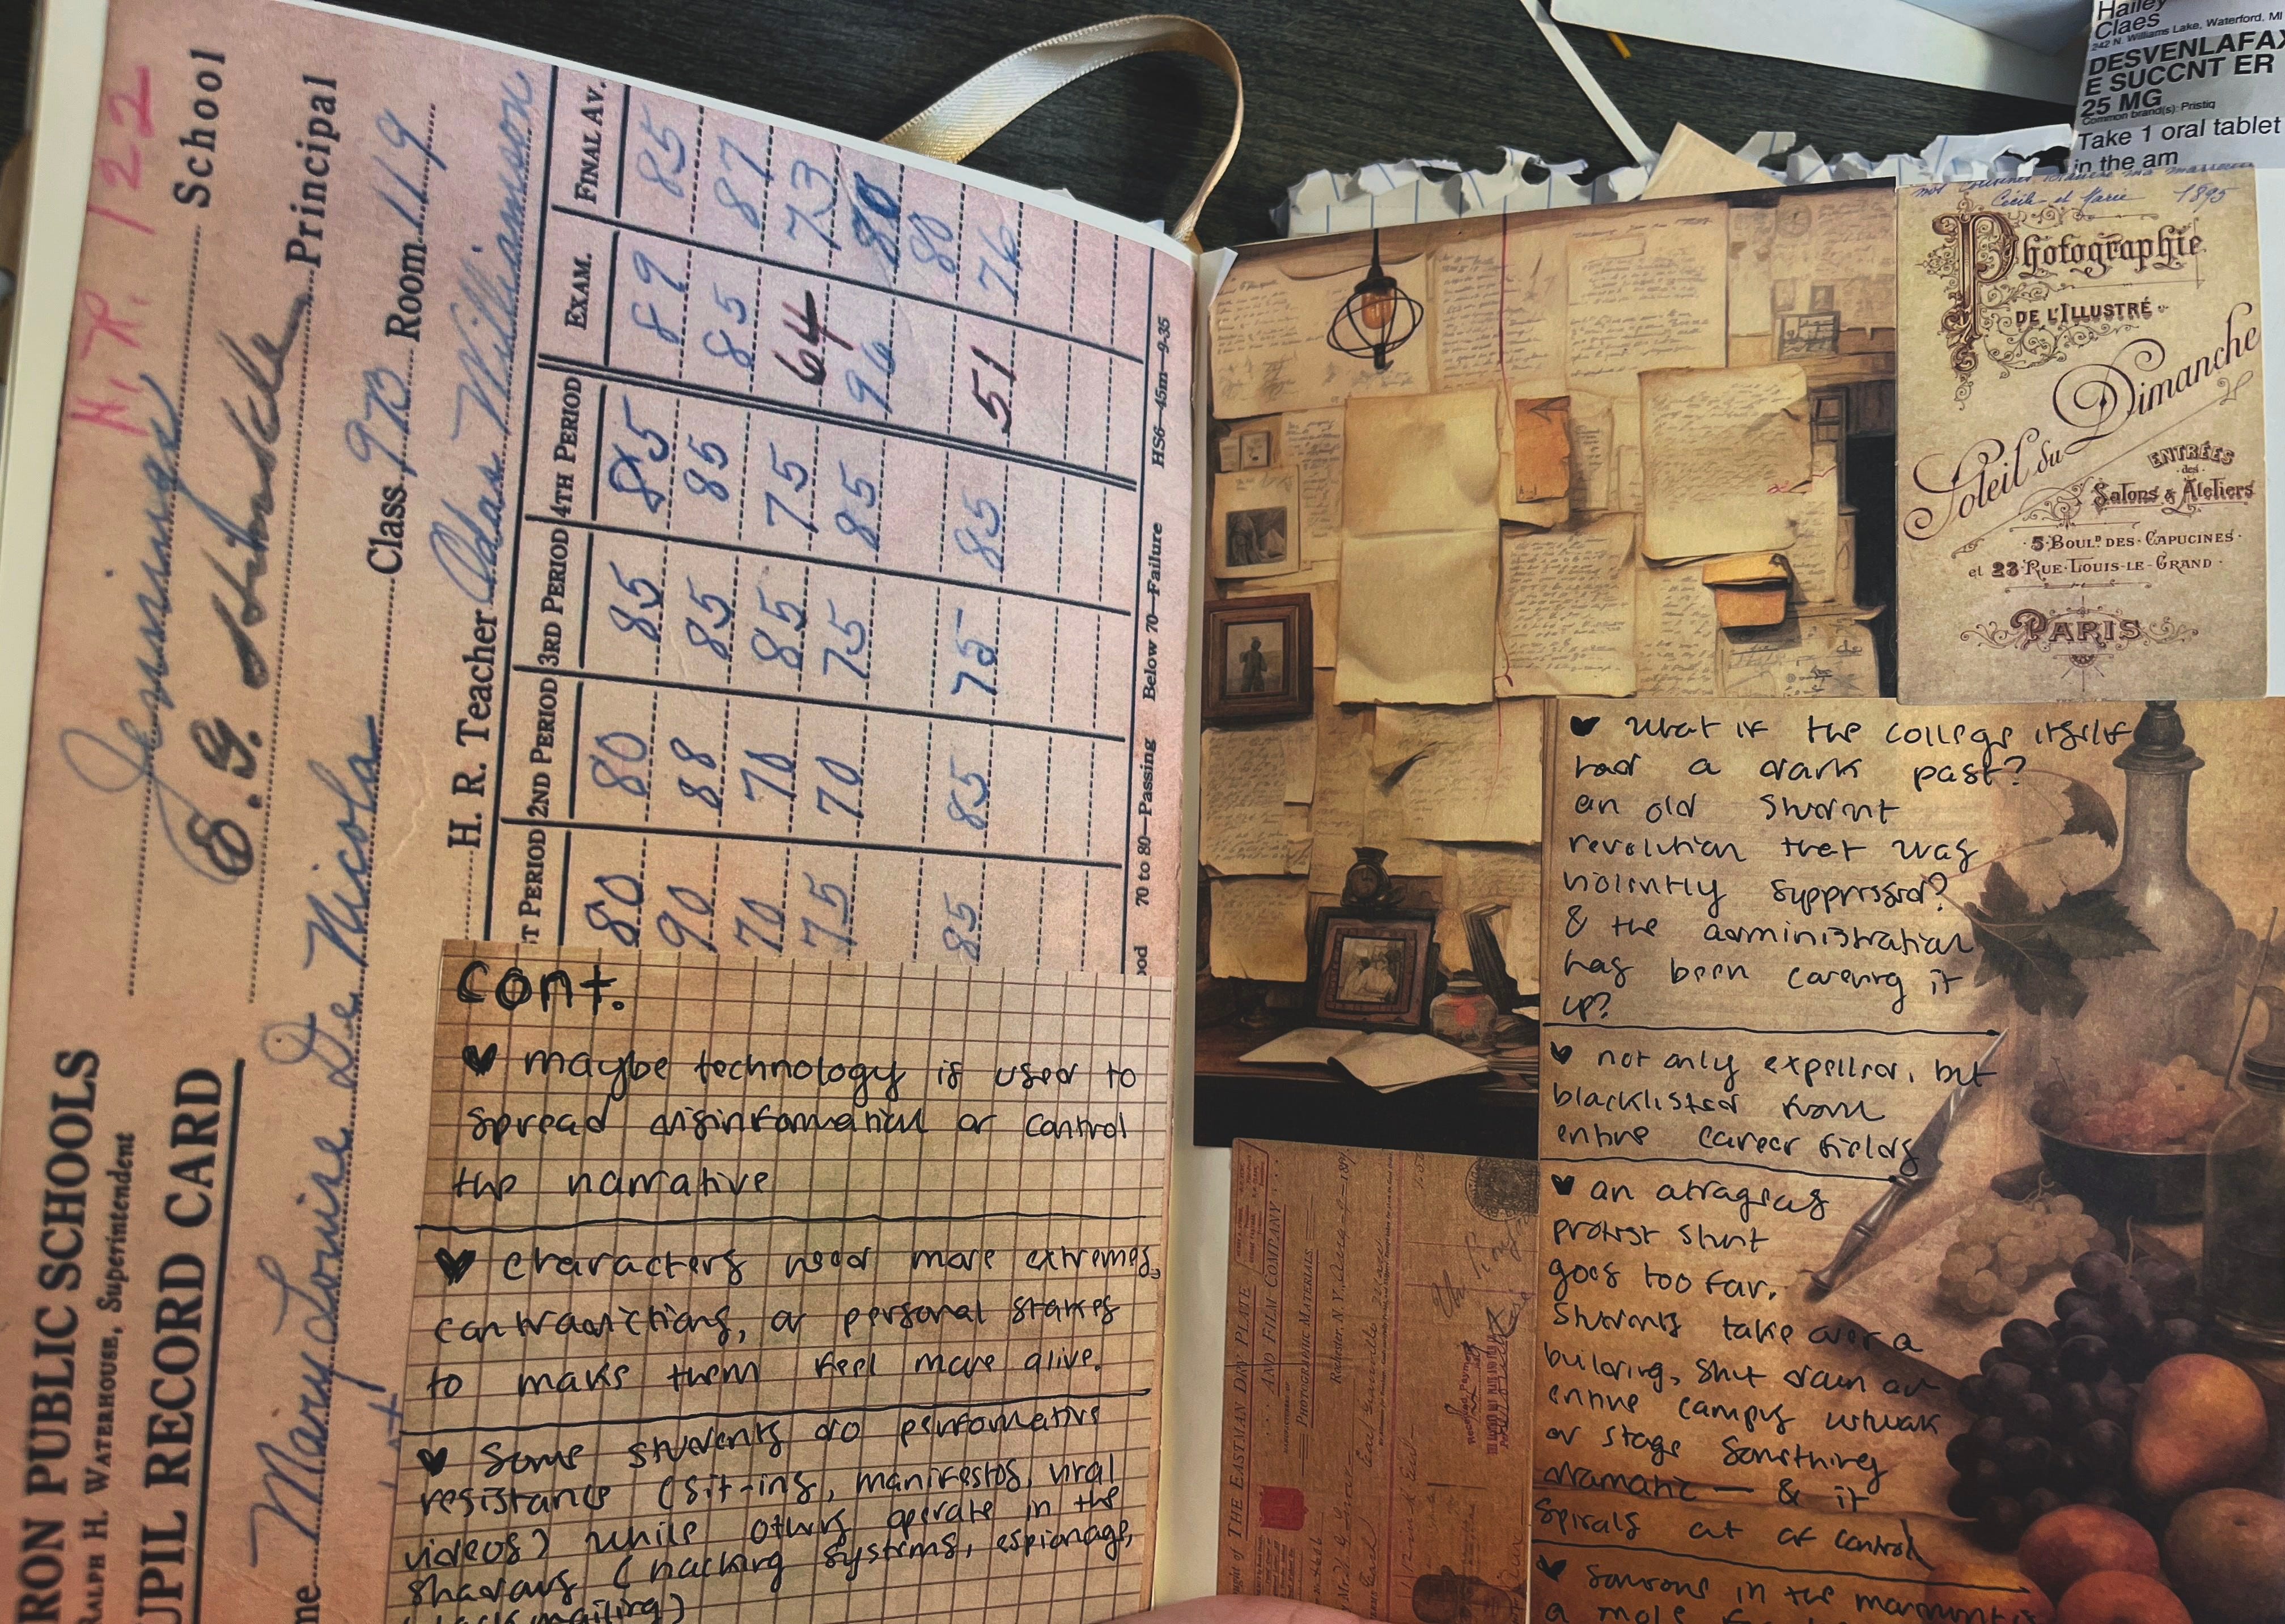 H. R. 122
Jennings School
E. G. Hinkle Principal
Mary Louise De Nicola Class 9B Room 119
H. R. Teacher Williamson
RON PUBLIC SCHOOLS
RALPH H. WATERHOUSE, Superintendent
UPIL RECORD CARD
T PERIOD 2ND PERIOD 3RD PERIOD 4TH PERIOD EXAM. FINAL AV.
80 80 85 85 89 85
90 88 85 85 85 87
70 70 85 75 64 73
75 70 75 85 96 80
80
85 85 75 85 51 76
ood 70 to 80—Passing Below 70—Failure HS6—45m—9-35
cont.
♥ maybe technology is used to
spread disinformation or control
the narrative
♥ characters need more extremes,
contradictions, or personal stakes
to make them feel more alive.
♥ Some students do performative
resistance (sit-ins, manifestos, viral
videos) while others operate in the
shadows (hacking systems, espionage,
blackmailing)
Hailey
Claes
242 N. Williams Lake, Waterford, MI
DESVENLAFAX
E SUCCNT ER
25 MG
Common brand(s): Pristiq
Take 1 oral tablet
in the am
Cécile et Marie 1895
Photographie
DE L'ILLUSTRÉ
Soleil du Dimanche
ENTRÉES
des
Salons & Ateliers
5 BOUL.D DES CAPUCINES
et 23 RUE LOUIS-LE-GRAND
PARIS
♥ what if the college itself
had a dark past?
an old student
revolution that was
violently suppressed?
& the administration
has been covering it
up?
♥ not only expelled, but
blacklisted from
entire career fields
♥ an atrageous
protest stunt
goes too far.
Students take over a
building, shut down an
entire campus network
or stage something
dramatic — & it
spirals out of control
♥ someone in the movement is
a mole
THE EASTMAN DRY PLATE
AND FILM COMPANY
PHOTOGRAPHIC MATERIALS
Rochester, N.Y.
Received Payment